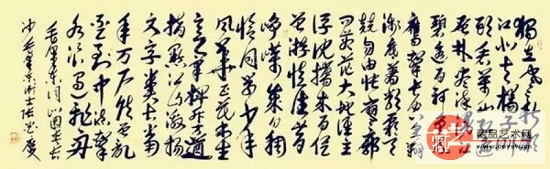 独立寒秋湘
江北去橘子洲
头看万山红遍
层林尽染漫江
碧透百舸争流
鹰击长空鱼翔
浅底万类霜天
竞自由怅寥廓
问苍茫大地谁主
沉浮携来百侣
曾游忆往昔
峥嵘岁月稠
恰同学少年
风华正茂书生
意气挥斥方遒
指点江山激扬
文字粪土当
年万户侯曾记
否到中流击
水浪遏飞舟
毛泽东词沁园春长
沙
藏品艺术网